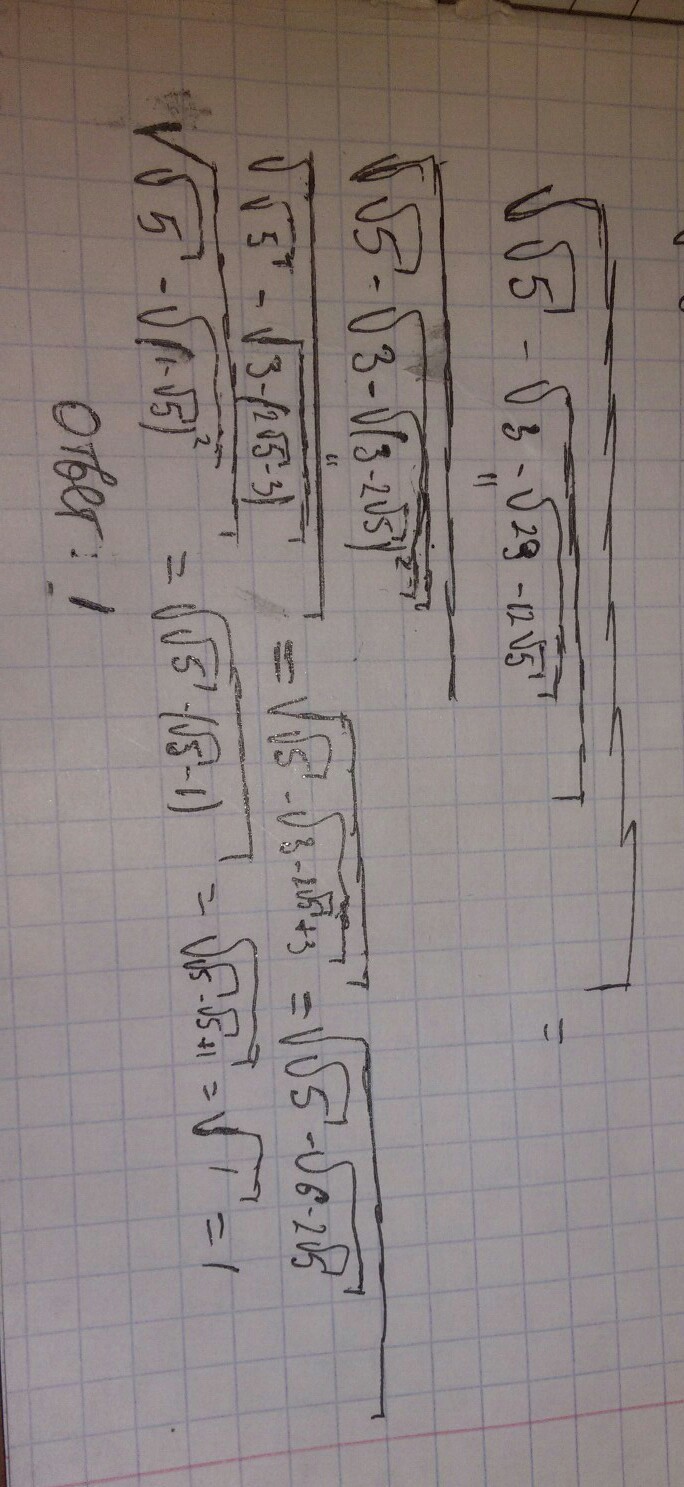 √(√5 - √(3 - √(29 - 12√5))) =
"
√(√5 - √(3 - √(3 - 2√5)²))
"
√(√5 - √(3 - (2√5 - 3))) = √(√5 - √(3 - 2√5 + 3)) = √(√5 - √(6 - 2√5))
√(√5 - √(1 - √5)²) = √(√5 - (√5 - 1)) = √(√5 - √5 + 1) = √1 = 1
Ответ: 1